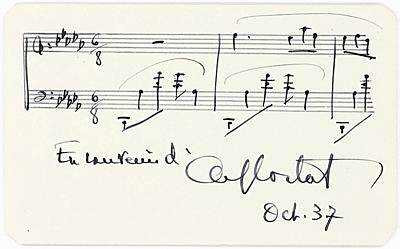 6/8
6/8
En souvenir d'
Alf Cortot
Oct. 37